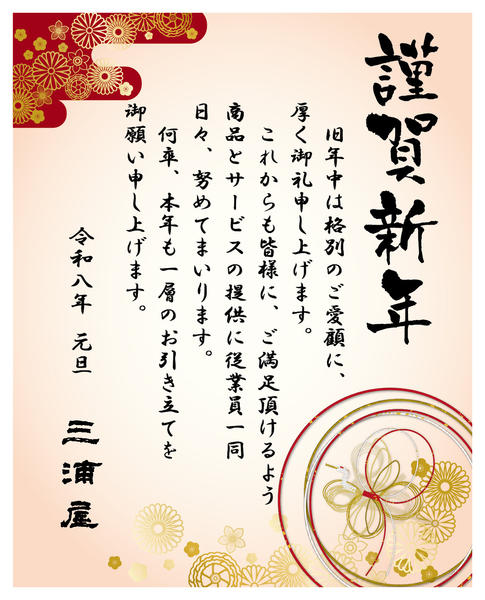 謹賀新年
旧年中は格別のご愛顧に、
厚く御礼申し上げます。
これからも皆様に、ご満足頂けるよう
商品とサービスの提供に従業員一同
日々、努めてまいります。
何卒、本年も一層のお引き立てを
御願い申し上げます。
令和八年 元旦
三浦屋